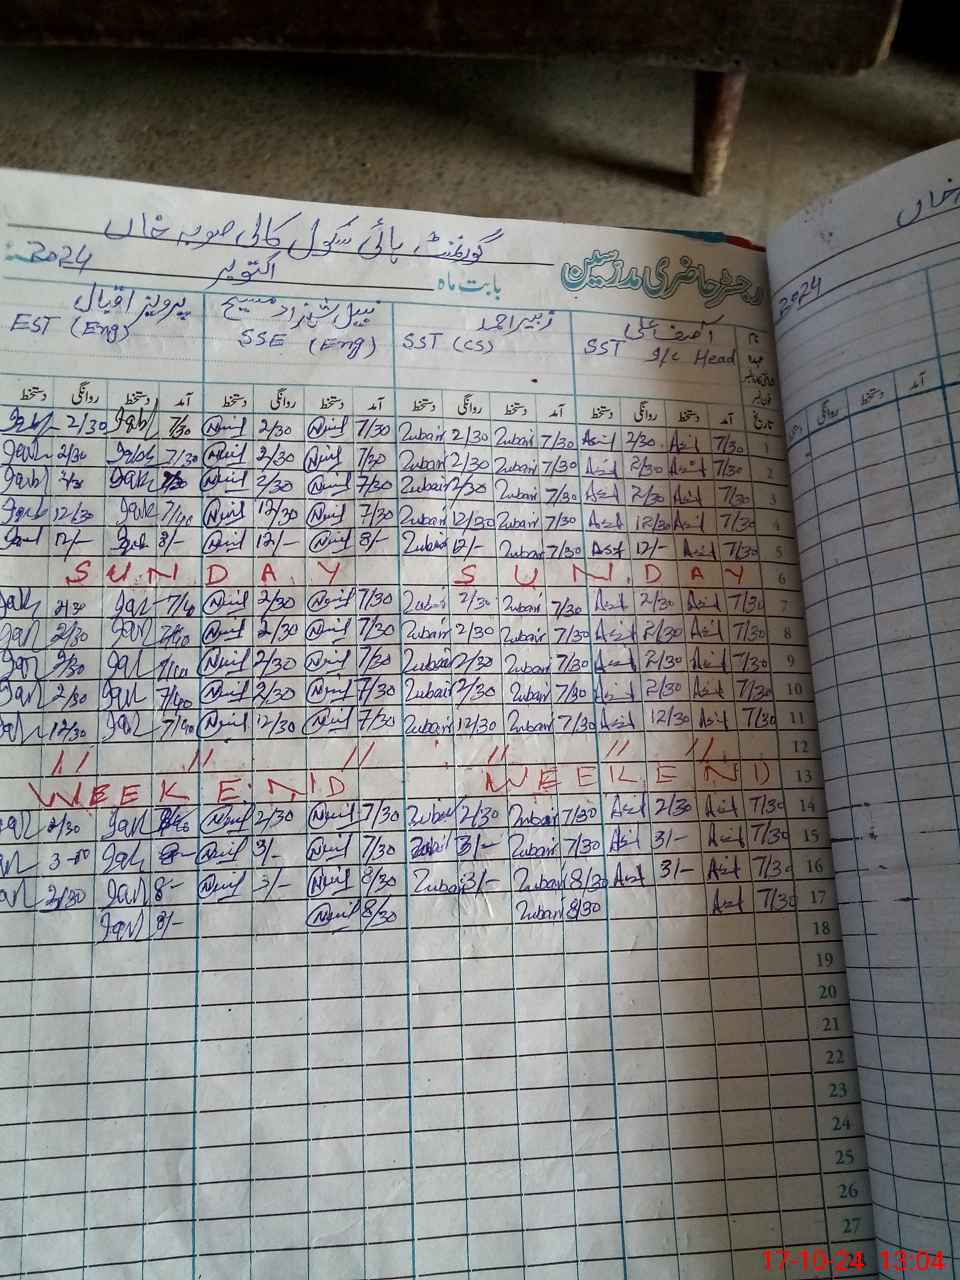 گورنمنٹ ہائی سکول کالی صوبہ خاں
رجسٹر حاضری مدرسین بابت ماہ اکتوبر 2024ء
آصف علی زبیر احمد نبیل شہزاد مسیح پرویز اقبال
SST I/c Head SST (CS) SSE (Eng) EST (Eng)
تاریخ آمد دستخط روانگی دستخط آمد دستخط روانگی دستخط آمد دستخط روانگی دستخط آمد دستخط روانگی دستخط
2/30 7/30 2/30 7/30 Zubair 2/30 Zubair 7/30 Asif 2/30 Asif 7/30 1
2/30 7/30 2/30 7/30 Zubair 2/30 Zubair 7/30 Asif 2/30 Asif 7/30 2
2/30 2/30 7/30 Zubair 2/30 Zubair 7/30 Asif 2/30 Asif 7/30 3
12/30 7/40 12/30 7/30 Zubair 12/30 Zubair 7/30 Asif 12/30 Asif 7/30 4
12/- 8/- 12/- 8/- Zubair 12/- Zubair 7/30 Asif 12/- Asif 7/30 5
SUNDAY SUNDAY 6
2/30 7/40 2/30 7/30 Zubair 2/30 Zubair 7/30 Asif 2/30 Asif 7/30 7
2/30 7/40 2/30 7/30 Zubair 2/30 Zubair 7/30 Asif 2/30 Asif 7/30 8
2/30 7/40 2/30 7/30 Zubair 2/30 Zubair 7/30 Asif 2/30 Asif 7/30 9
2/30 7/40 2/30 7/30 Zubair 2/30 Zubair 7/30 Asif 2/30 Asif 7/30 10
12/30 7/40 12/30 7/30 Zubair 12/30 Zubair 7/30 Asif 12/30 Asif 7/30 11
// // // // // // 12
WEEKEND WEEKEND 13
2/30 2/30 7/30 Zubair 2/30 Zubair 7/30 Asif 2/30 Asif 7/30 14
3-00 3/- 7/30 Zubair 3/- Zubair 7/30 Asif 3/- Asif 7/30 15
2/30 8- 3/- 8/30 Zubair 3/- Zubair 8/30 Asif 3/- Asif 7/30 16
8/- 8/30 Zubair 8/30 Asif 7/30 17
18
19
20
21
22
23
24
25
26
27
خاں
2024
آمد دستخط روانگی
17-10-24 13:04